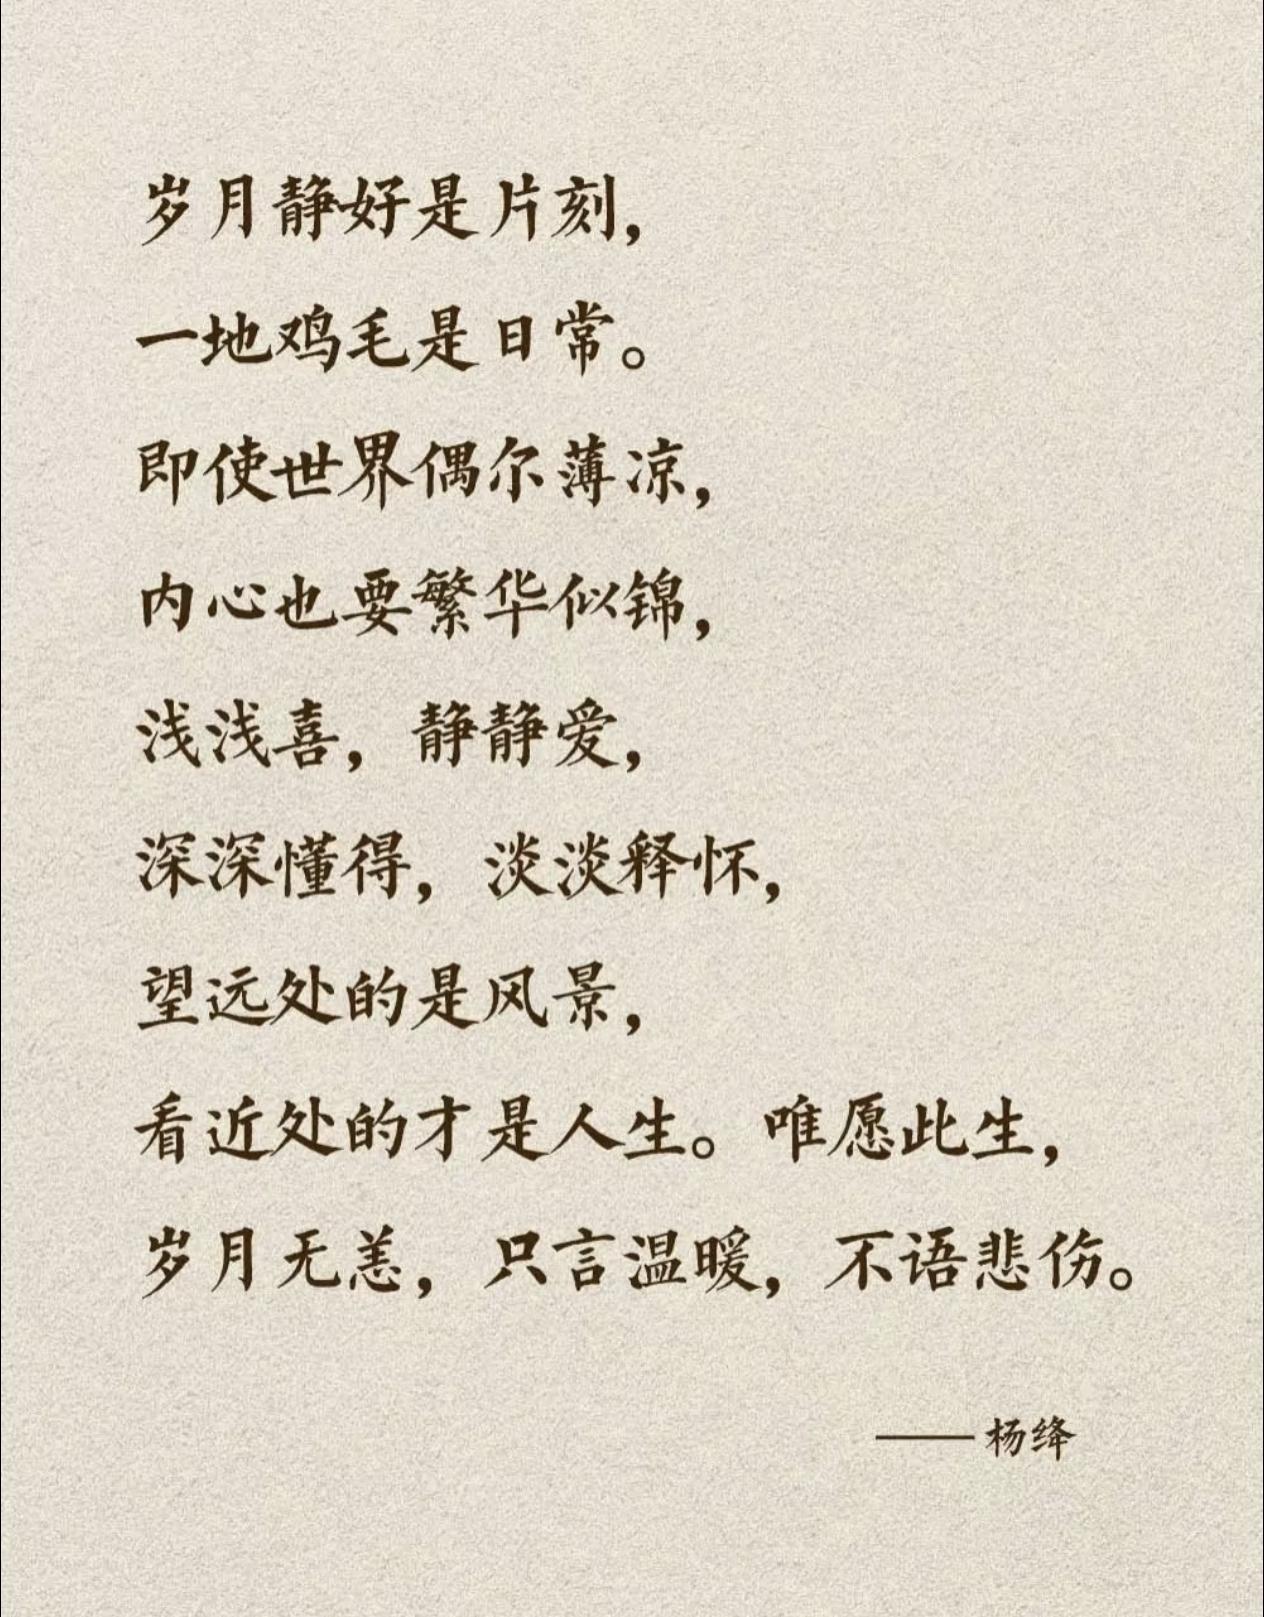 岁月静好是片刻，
一地鸡毛是日常。
即使世界偶尔薄凉，
内心也要繁华似锦，
浅浅喜，静静爱，
深深懂得，淡淡释怀，
望远处的是风景，
看近处的才是人生。唯愿此生，
岁月无恙，只言温暖，不语悲伤。
——杨绛